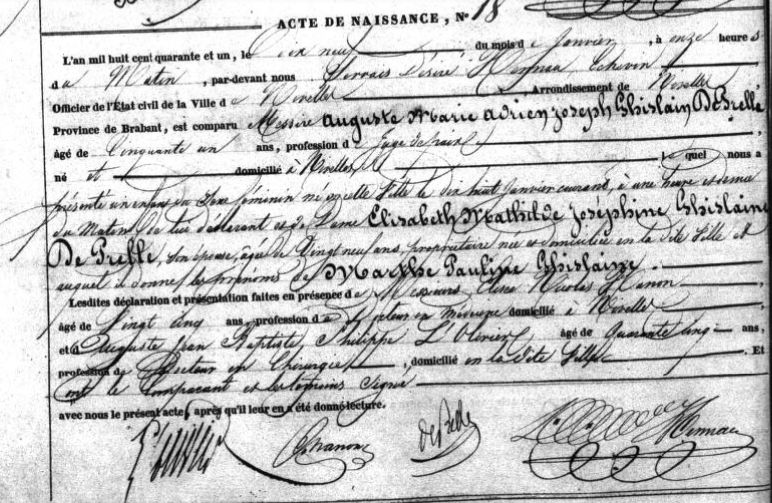 ACTE DE NAISSANCE, N° 18
L'an mil huit cent quarante et un, le Dix neuf du mois de Janvier, à onze heures
du Matin, par-devant nous Désiré Echevin
Officier de l'État civil de la Ville de Nivelles, Arrondissement de Nivelles
Province de Brabant, est comparu Messire Auguste Marie Adrien Joseph Ghislain De Prelle
âgé de Cinquante un ans, profession de Juge de paix,
né et domicilié à Nivelles, lequel nous a
présenté un enfant du Sexe féminin né en cette Ville le dix huit Janvier courant, à une heure et demie
du Matin, de lui déclarant et de Dame Elisabeth Mathilde Joséphine Ghislaine
De Prelle, son épouse, âgée de Vingt neuf ans, propriétaire née et domiciliée en la dite Ville et
auquel il donne les prénoms de Marthe Pauline Ghislaine.
Lesdites déclaration et présentation faites en présence de Messieurs Nicolas Hanon,
âgé de Vingt cinq ans, profession de Docteur en médecine domicilié à Nivelles
et d'Auguste Jean Baptiste Philippe L'Olivier, âgé de Quarante cinq ans,
profession de Docteur en Chirurgie, domicilié en la dite Ville. Et
ont le Comparant et les témoins Signé
avec nous le présent acte, après qu'il leur en a été donné lecture.
Hanon de Prelle